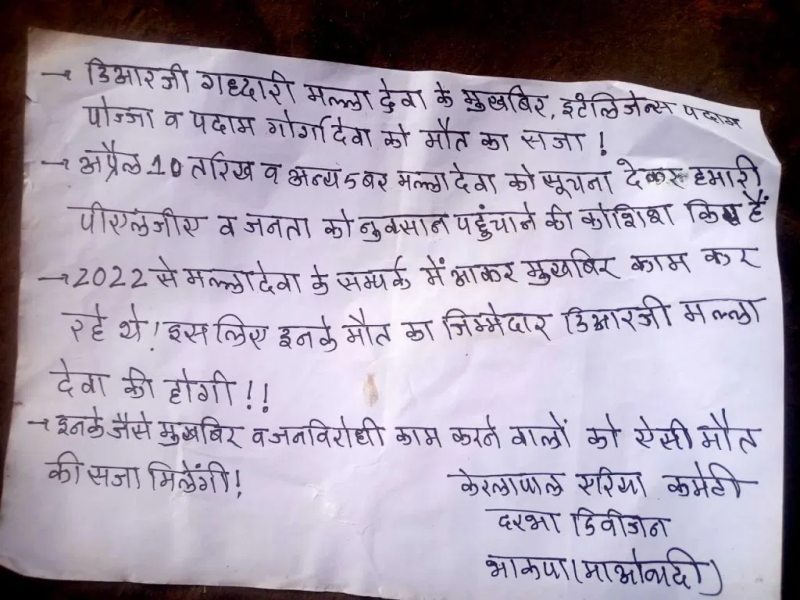 → डिआरजी गध्दारी मल्ला देवा के मुखबिर, इटेलिजेन्स पदाम
पोज्जा व पदाम गोर्गा देवा को मौत का सजा !
→ अप्रैल 10 तारिख व अन्य 5 बर मल्ला देवा को सूचना देकर हमारी
पीएलजीए व जनता को नुक्सान पहुंचाने की कोशिश किए हैं
→ 2022 से मल्ला देवा के सम्पर्क में आकर मुखबिर काम कर
रहे थे ! इस लिए इनके मौत का जिम्मेदार डिआरजी मल्ला
देवा की होगी !!
→ इनके जैसे मुखबिर व जनविरोधी काम करने वालों को ऐसी मौत
की सजा मिलेंगी !
केरलापाल एरिया कमेटी
दरभा डिवीजन
भाकपा (माओवादी)